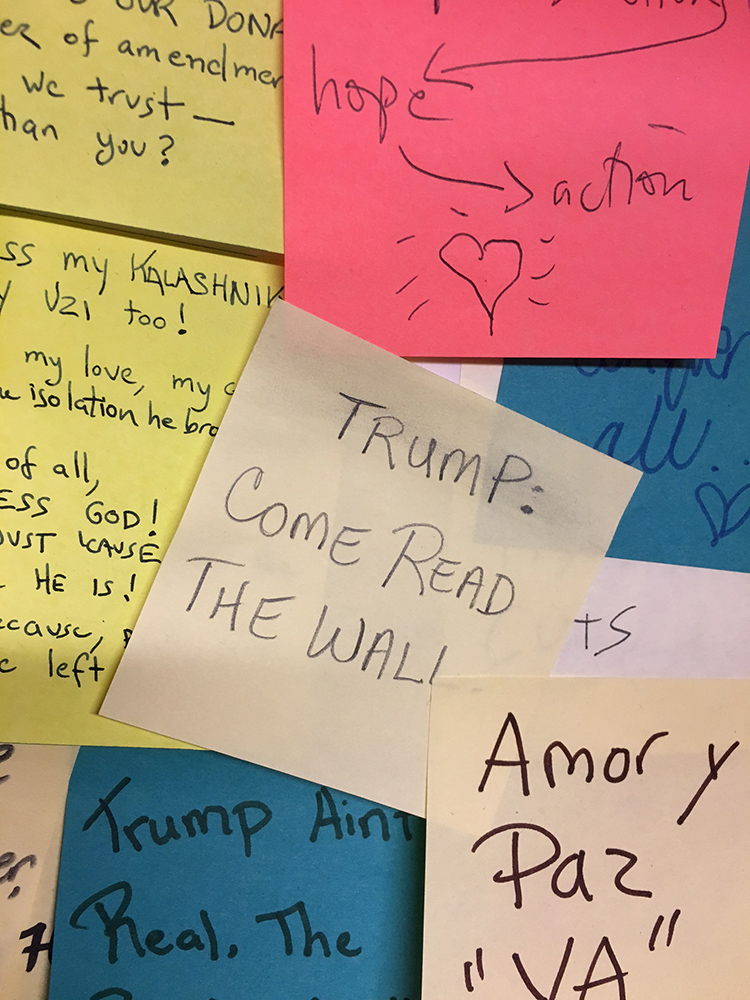 OUR DONA
of amendmer
we trust —
han you?
hope
action
ss my KALASHNIK
UZI too!
my love, my
isolation he bro
of all,
ESS GOD!
JUST 'CAUSE
HE IS!
ecause,
left
all...
TRUMP:
COME READ
THE WALL
ts
Trump Ain't
Real. The
Amor y
Paz
"VA"